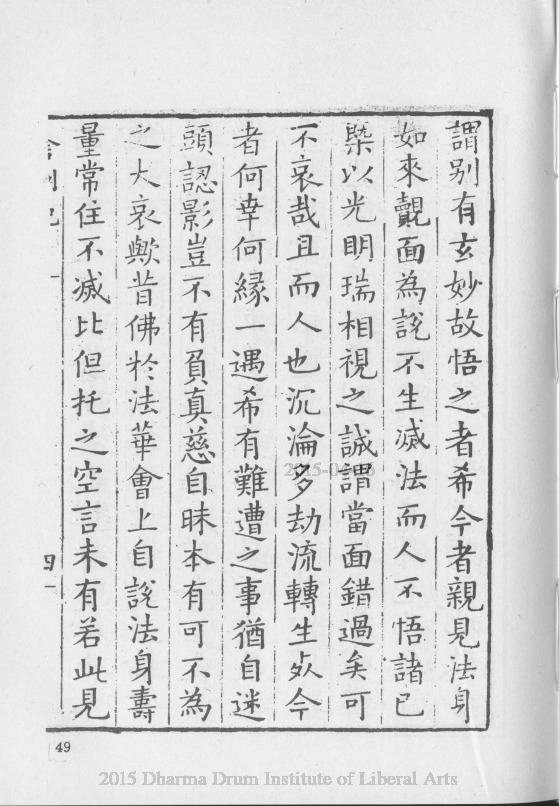 謂别有玄妙故悟之者希今者親見法身
如來覿面為説不生滅法而人不悟諸已
槩以光明瑞相視之誠謂當面錯過矣可
不哀哉且而人也沉淪多劫流轉生死今
者何幸何緣一遇希有難遭之事猶自迷
頭認影豈不有負真慈自昧本有可不為
之大哀歟昔佛於法華會上自説法身壽
量常住不滅比但托之空言未有若此見
四
49
2015 Dharma Drum Institute of Liberal Arts